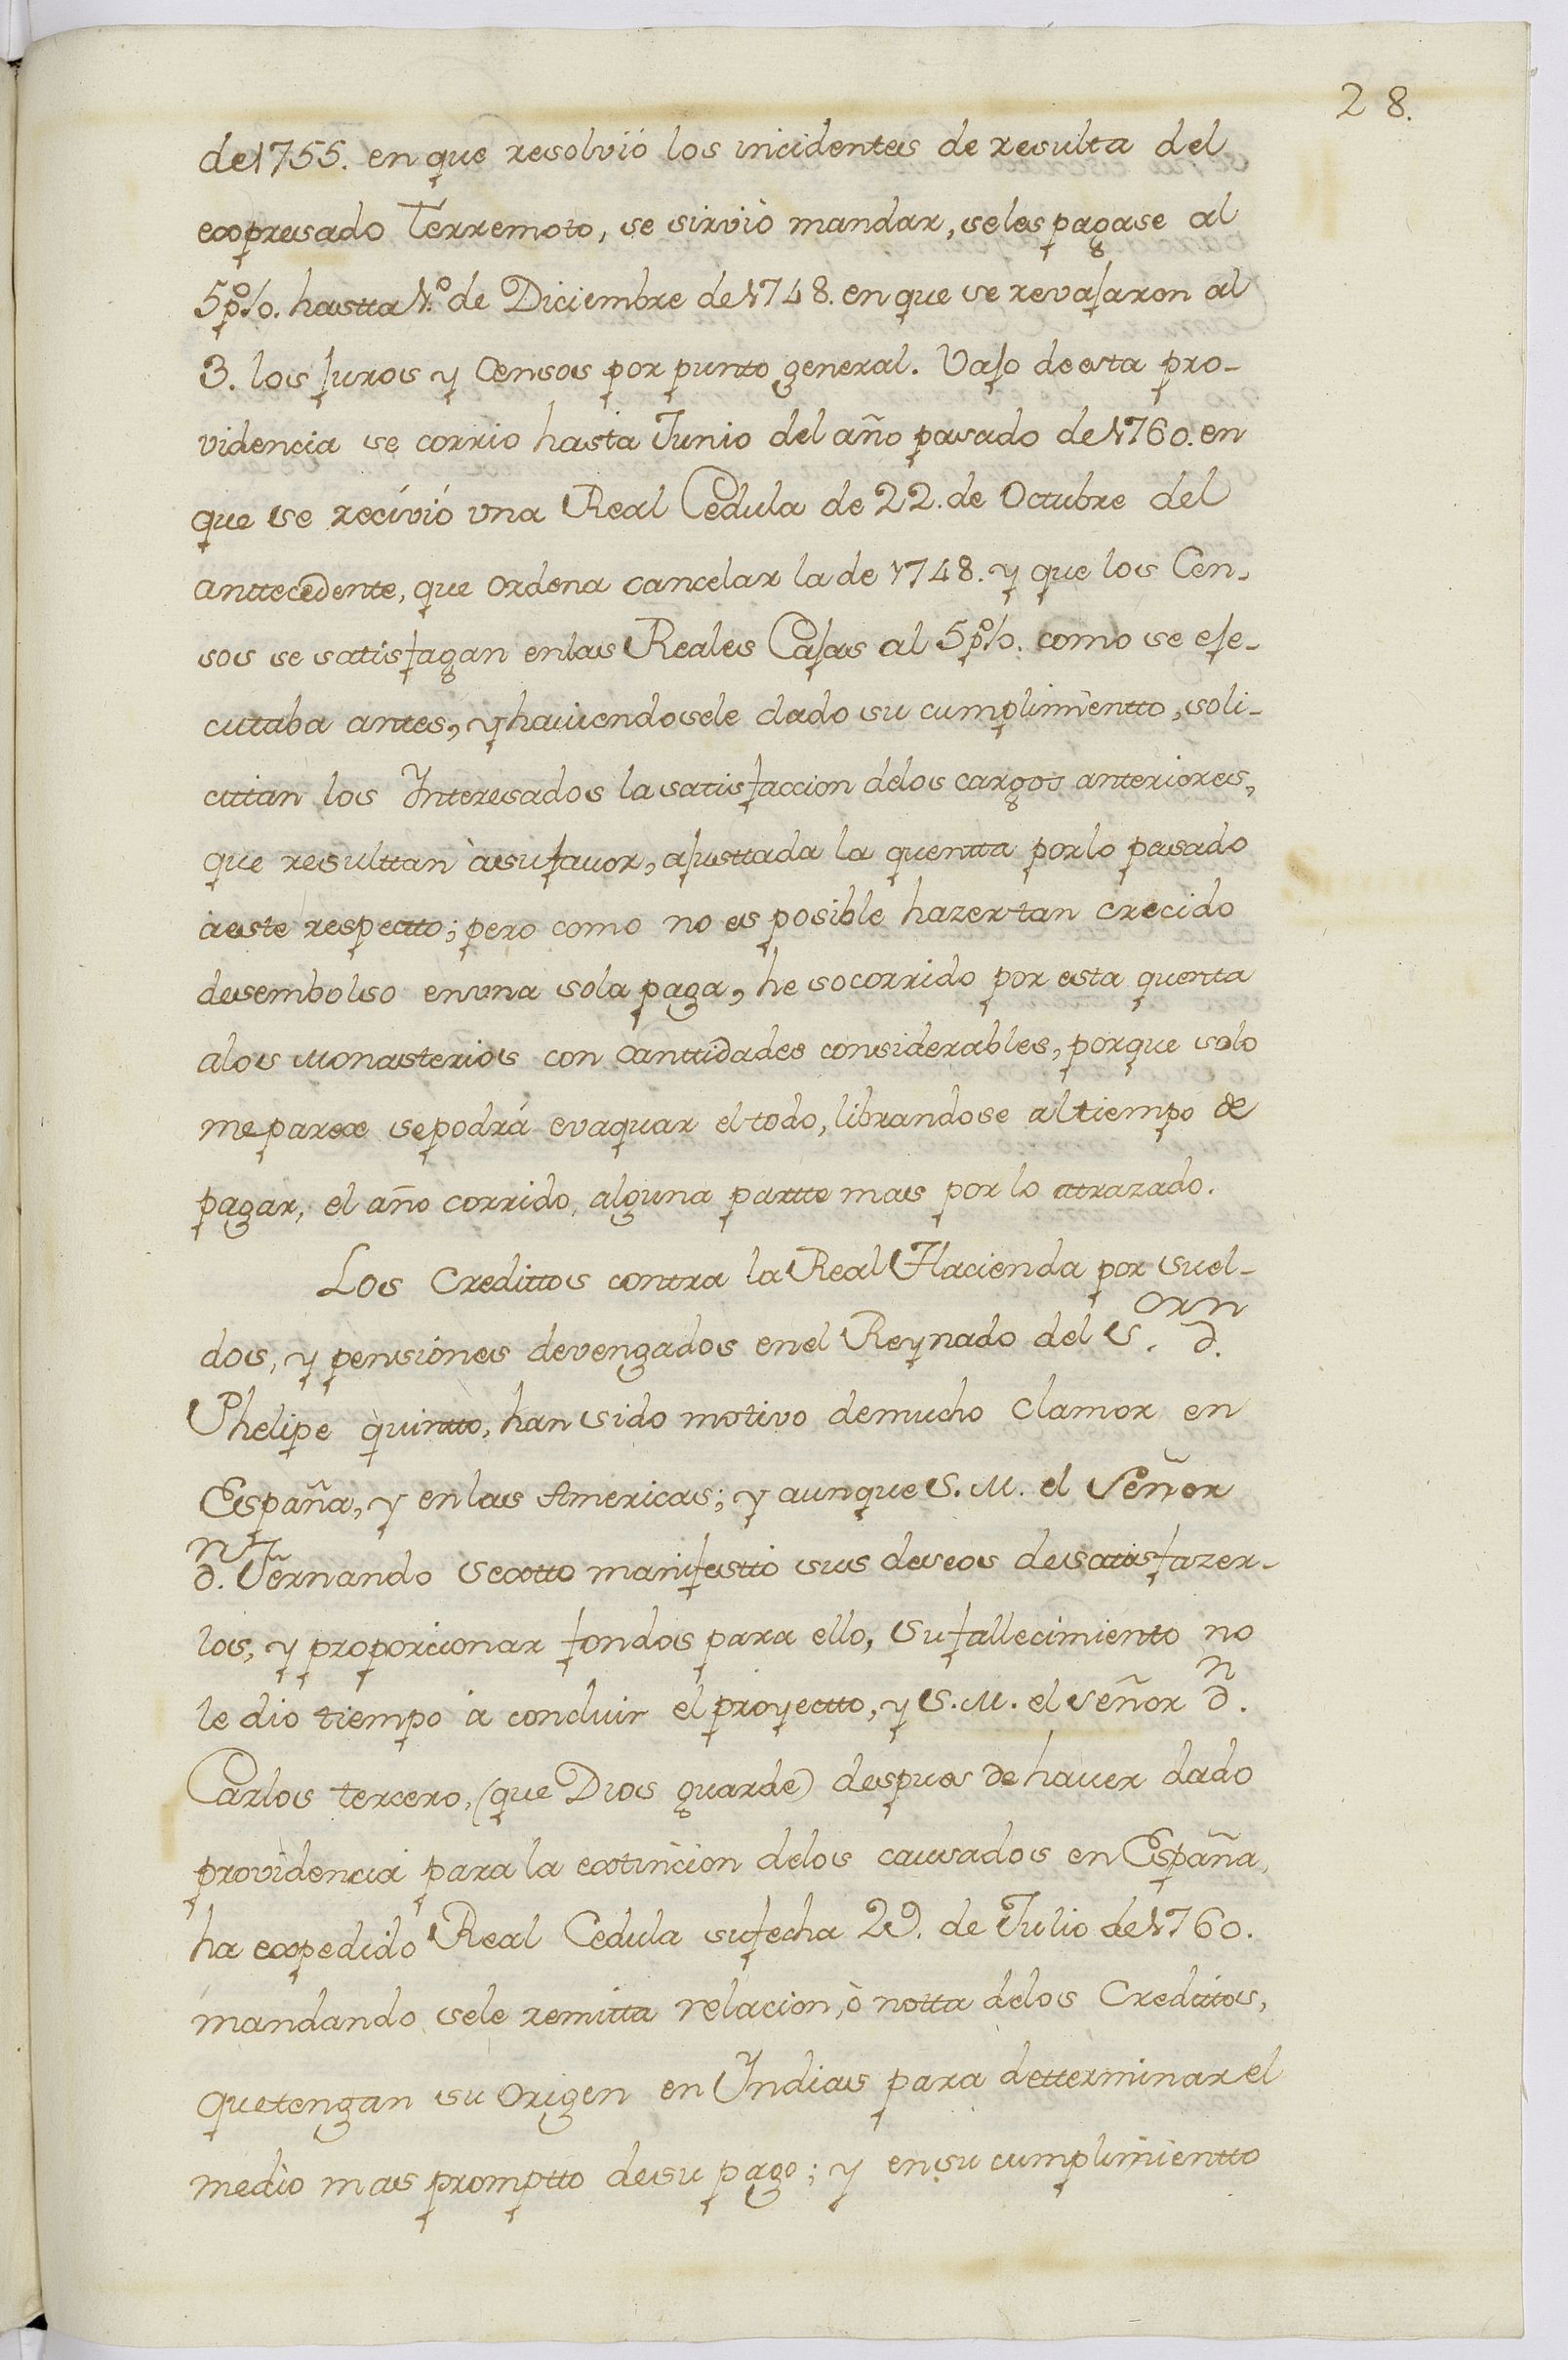 28.
de 1755. en que resolvió los incidentes de resulta del
expresado Terremoto, se sirvió mandar, se les pagase al
5 p%. hastta 1.º de Diciembre de 1748. en que se revajaron al
3. los juros y Censos por punto general. Vajo de esta pro-
videncia se corrio hasta Junio del año pasado de 1760. en
que se recivió una Real Cedula de 22. de Octubre del
anttecedente, que ordena cancelar la de 1748. y que los Cen-
sos se satisfagan en las Reales Cajas al 5 p%. como se eje-
cutaba antes, y haviendosele dado su cumplimientto, soli-
citan los Interesados la satisfaccion de los cargos anteriores,
que resulttan à su favor, ajusttada la quentta por lo pasado
à este respectto; pero como no es posible hazer tan crecido
desembolso en una sola paga, he socorrido por esta quenta
a los Monasterios con canttidades considerables, porque solo
me parece se podrá evaquar el todo, librandose al tiempo de
pagar, el año corrido, alguna partte mas por lo atrazado.
Los Credittos contra la Real Hacienda por suel-
dos, y pensiones devengados en el Reynado del S.or D.n
Phelipe quintto, han sido motivo de mucho clamor en
España, y en las Americas; y aunque S. M. el Señor
D.n Fernando Sextto manifesttó sus deseos de satisfazer-
los, y proporcionar fondos para ello, su fallecimiento no
le dio tiempo à concluir el proyectto, y S. M. el Señor D.n
Carlos tercero, (que Dios guarde) despues de haver dado
providencia para la extincion de los causados en España,
ha expedido Real Cedula su fecha 29. de Julio de 1760.
mandando se le remitta relacion, ò notta de los Credittos,
que tengan su origen en Yndias para detterminar el
medio mas promptto de su pago; y en su cumplimientto